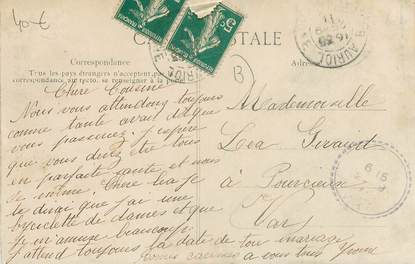 40€
CA POSTALE
Correspondance
Adre
Tous les pays étrangers n'acceptent pas
correspondance au recto, se renseigner à la po
B
AURIOL
6 15
Chère Cousine
Nous vous attendons toujours
comme tante avait dit que
vous passeriez. J'espère
que vous devez être tous
en parfaite santé et nous
de même. Chère Léa je
te dirai que j'ai une
byciclette de dames et que
je m'amuse beaucoup
J'attend toujours la date de ton mariage
a vous tous
Mademoiselle
Léa Giraud
à Pourcieux
Var